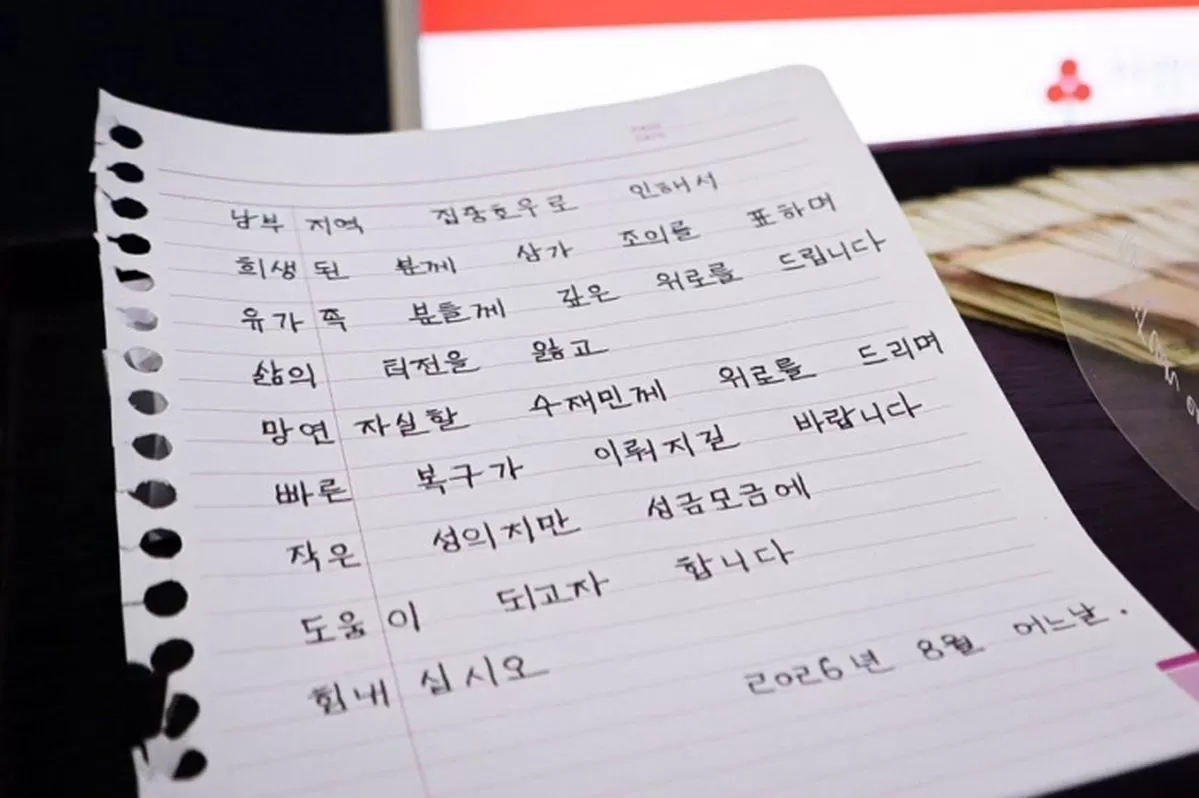 남부 지역 집중호우로 인해서
희생된 분께 삼가 조의를 표하며
유가족 분들께 깊은 위로를 드립니다
삶의 터전을 잃고
망연 자실할 수재민께 위로를 드리며
빠른 복구가 이뤄지길 바랍니다
작은 성의지만 성금모금에
도움이 되고자 합니다
힘내십시오
2026년 8월 어느날.